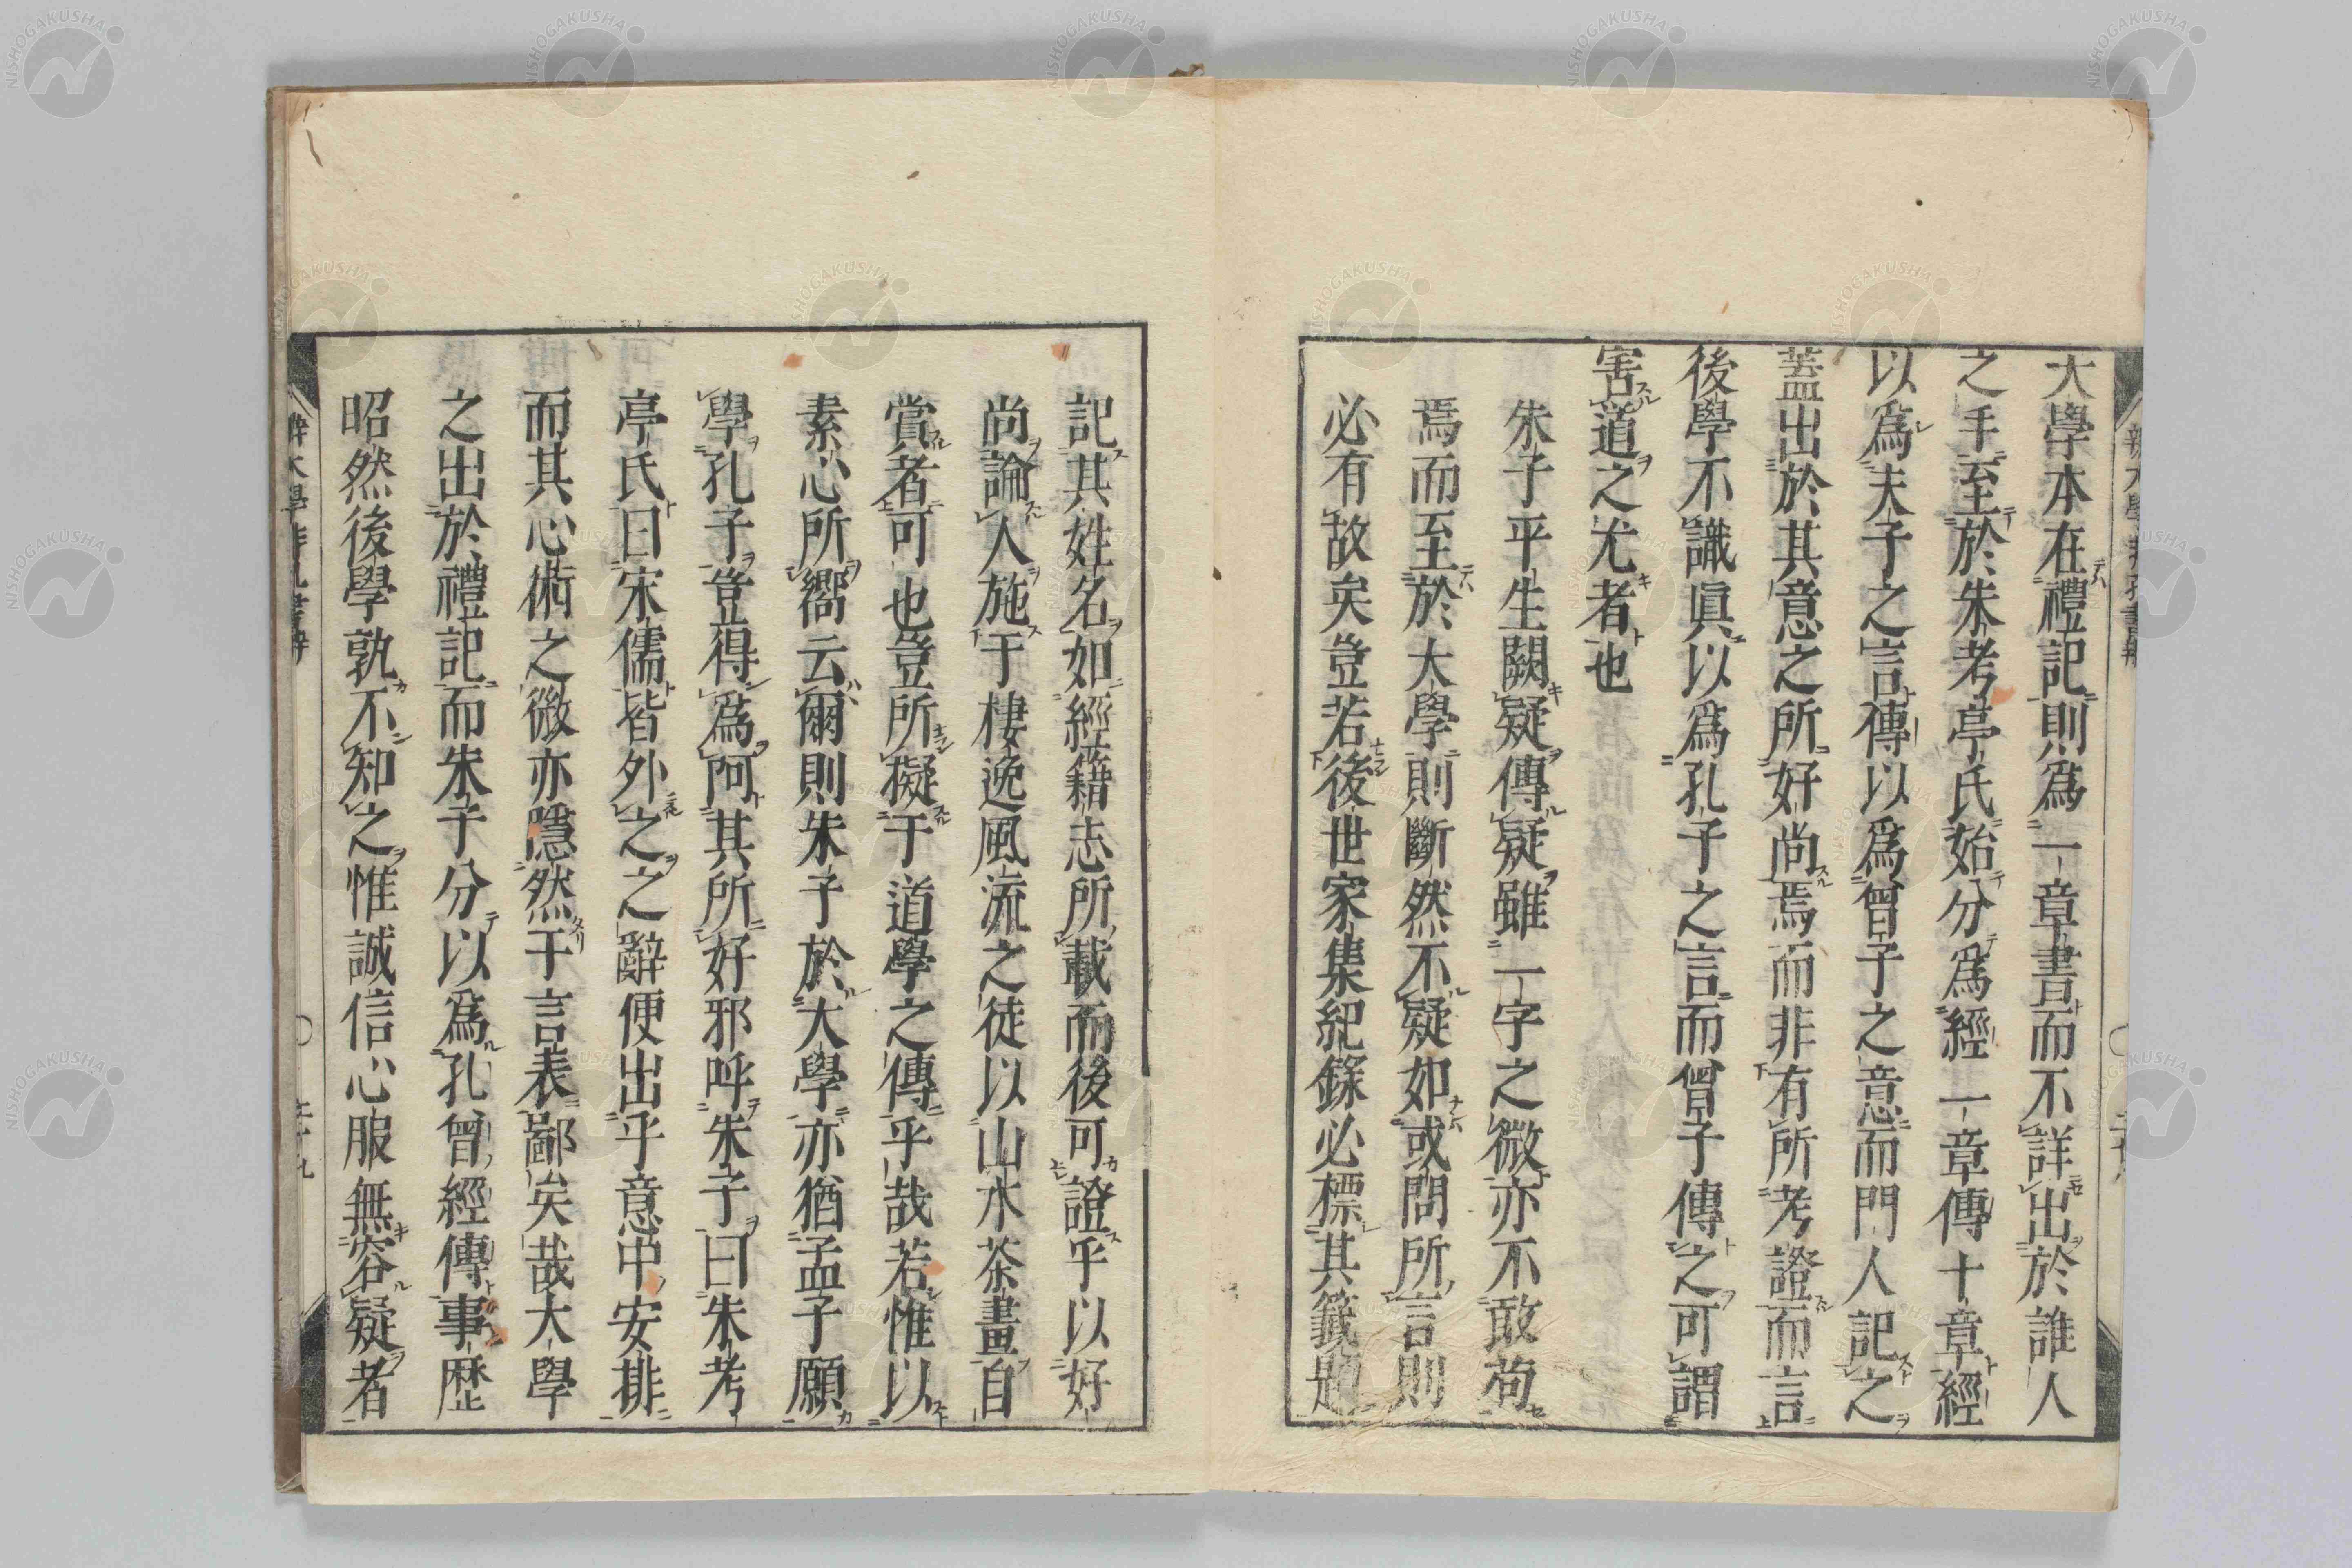 大學本在禮記則爲一章書而不詳出於誰人
之手至於朱考亭氏始分爲經一章傳十章經
以爲夫子之言傳以爲曾子之意而門人記之
蓋出於其意之所好尚焉而非有所考證而言
後學不識眞以爲孔子之言而曾子傳之可謂
害道之尤者也
朱子平生闕疑傳疑雖一字之微亦不敢苟
焉而至於大學則斷然不疑如或問所言則
必有故矣豈若後世家集紀錄必標其籤題
記其姓名如經籍志所載而後可證乎以好
尚論人施于棲逸風流之徒以山水茶畫自
賞者可也豈所擬于道學之傳乎哉若惟以
素心所嚮云爾則朱子於大學亦猶孟子願
學孔子豈得爲阿其所好邪呼朱子曰朱考
亭氏曰宋儒皆外之之辭便出乎意中安排
而其心術之微亦隱然于言表鄙矣哉大學
之出於禮記而朱子分以爲孔曾經傳事歷
昭然後學孰不知之惟誠信心服無容疑者